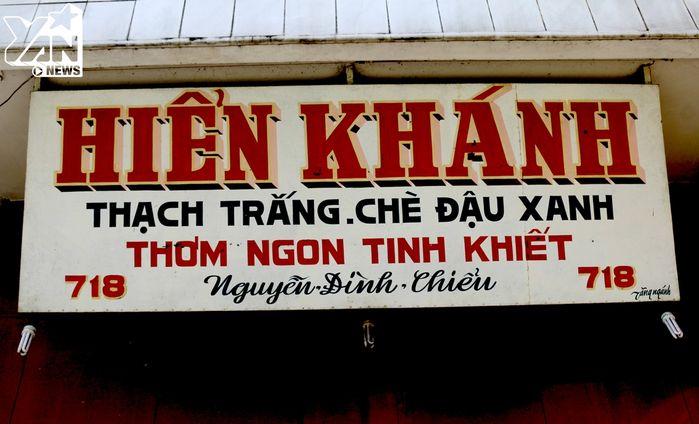 YAN
NEWS
HIỂN KHÁNH
THẠCH TRẮNG.CHÈ ĐẬU XANH
THƠM NGON TINH KHIẾT
718 Nguyễn-Đình-Chiểu 718